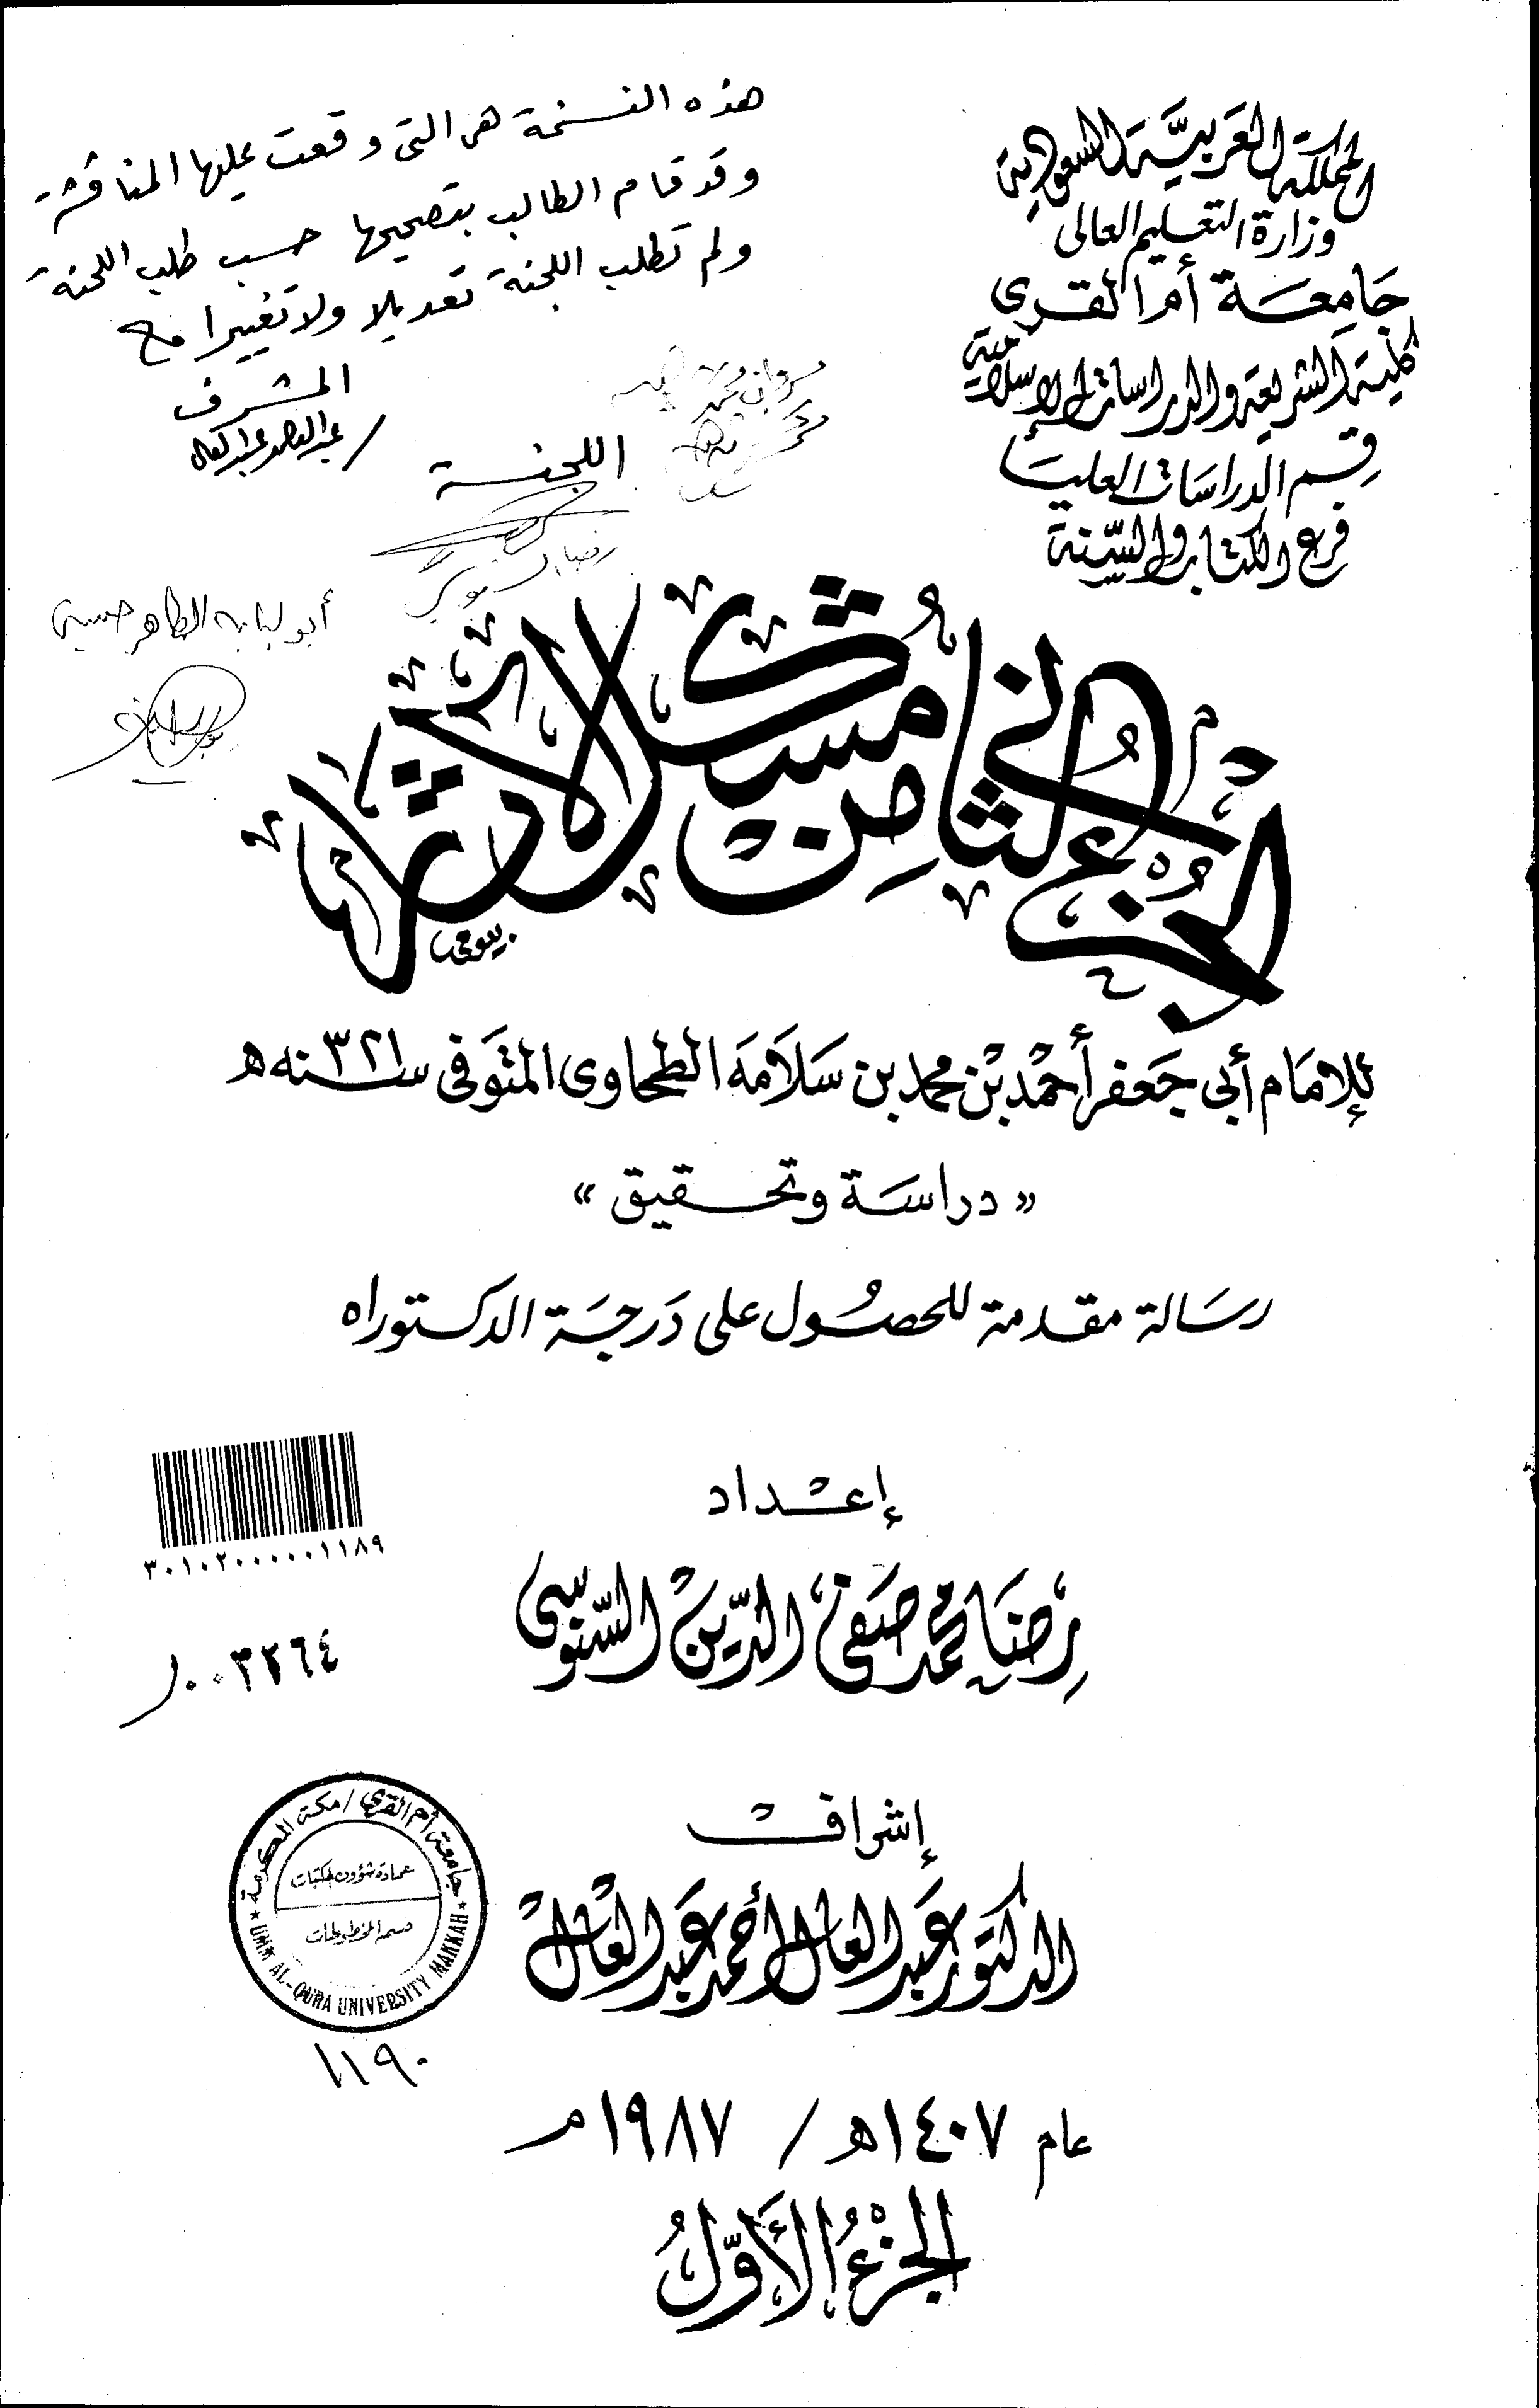 المملكة العربية السعودية
وزارة التعليم العالى
جَامِعَة أم القرى
كلية الشريعة والدراسات الإسلامية
قِسم الدراسَات العليَا
فرع الكتاب والسّنة
هذه النسخة هى التى وقعت عليها المناقشة
وقد قام الطالب بتصحيحها حسب طلب اللجنة
ولم تطلب اللجنة تعديلا ولا تغييرا مع
المشرف
اللجنة
أبو لبابه الطاهر حسين
الجزء الثانى من مشكل الآثار
للإمَام أبي جَعفر أحمْد بْن محمد بن سَلَامَة الطحاوى المتوَفى سنه ٣٢١ ه
« دراسَة وتحقيق »
رسَالة مقدمة للحصُول على دَرجَة الدكتوراه
إعْداد
رِضَا محمد صَفىّ الدّين السّنوسى
٣٠١٠٢٠٠٠٠٠١١٨٩
٠٠٣٢٦٤
إشراف
الدكتور عَبد العال أحمد عَبد العال
جامعة أم القرى / مكة المكرمة
عمادة شؤون المكتبات
قسم المخطوطات
UMM AL-QURA UNIVERSITY MAKKAH
١١٩٠
عام ١٤٠٧ه / ١٩٨٧م
الجزْءُ الأَوّلُ